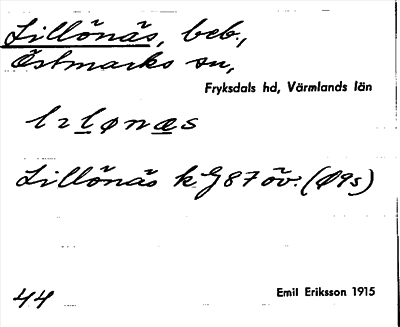 Lillönäs, beb.,
Östmarks sn,
Fryksdals hd, Värmlands län
lılønæs
Lillönäs k. G 87 öv. (Ø9s)
44
Emil Eriksson 1915